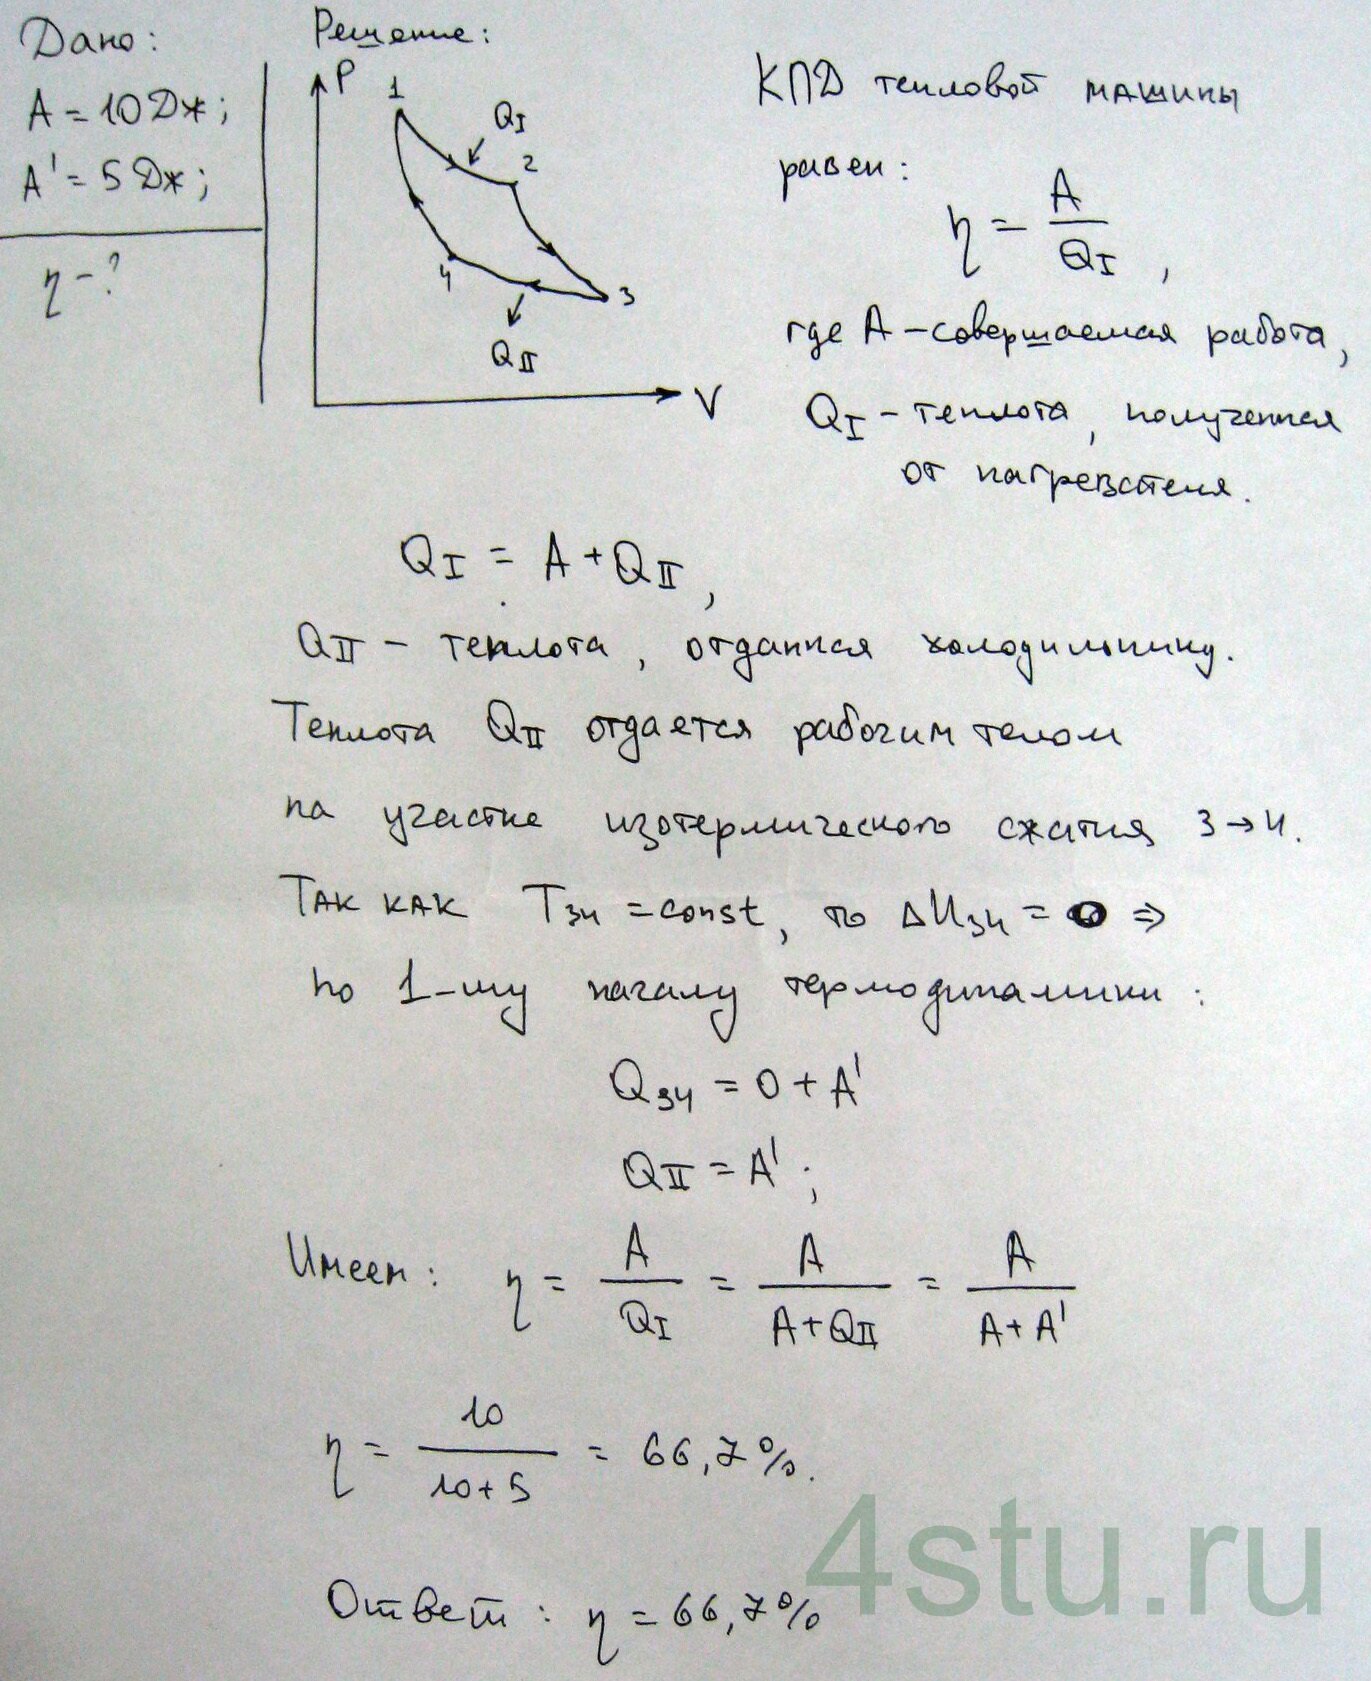 Дано:
A = 10 Дж;
A' = 5 Дж;
η - ?
Решение:
P
1
Q_I
2
4
3
Q_II
V
КПД тепловой машины
равен:
η = A / Q_I ,
где A – совершаемая работа,
Q_I – теплота, полученная
от нагревателя.
Q_I = A + Q_II ,
Q_II – теплота, отданная холодильнику.
Теплота Q_II отдается рабочим телом
на участке изотермического сжатия 3→4.
Так как T_34 = const, то ΔU_34 = 0 ⇒
по 1-му началу термодинамики:
Q_34 = 0 + A'
Q_II = A' ;
Имеем: η = A / Q_I = A / (A + Q_II) = A / (A + A')
η = 10 / (10 + 5) = 66,7%.
Ответ: η = 66,7%
4stu.ru